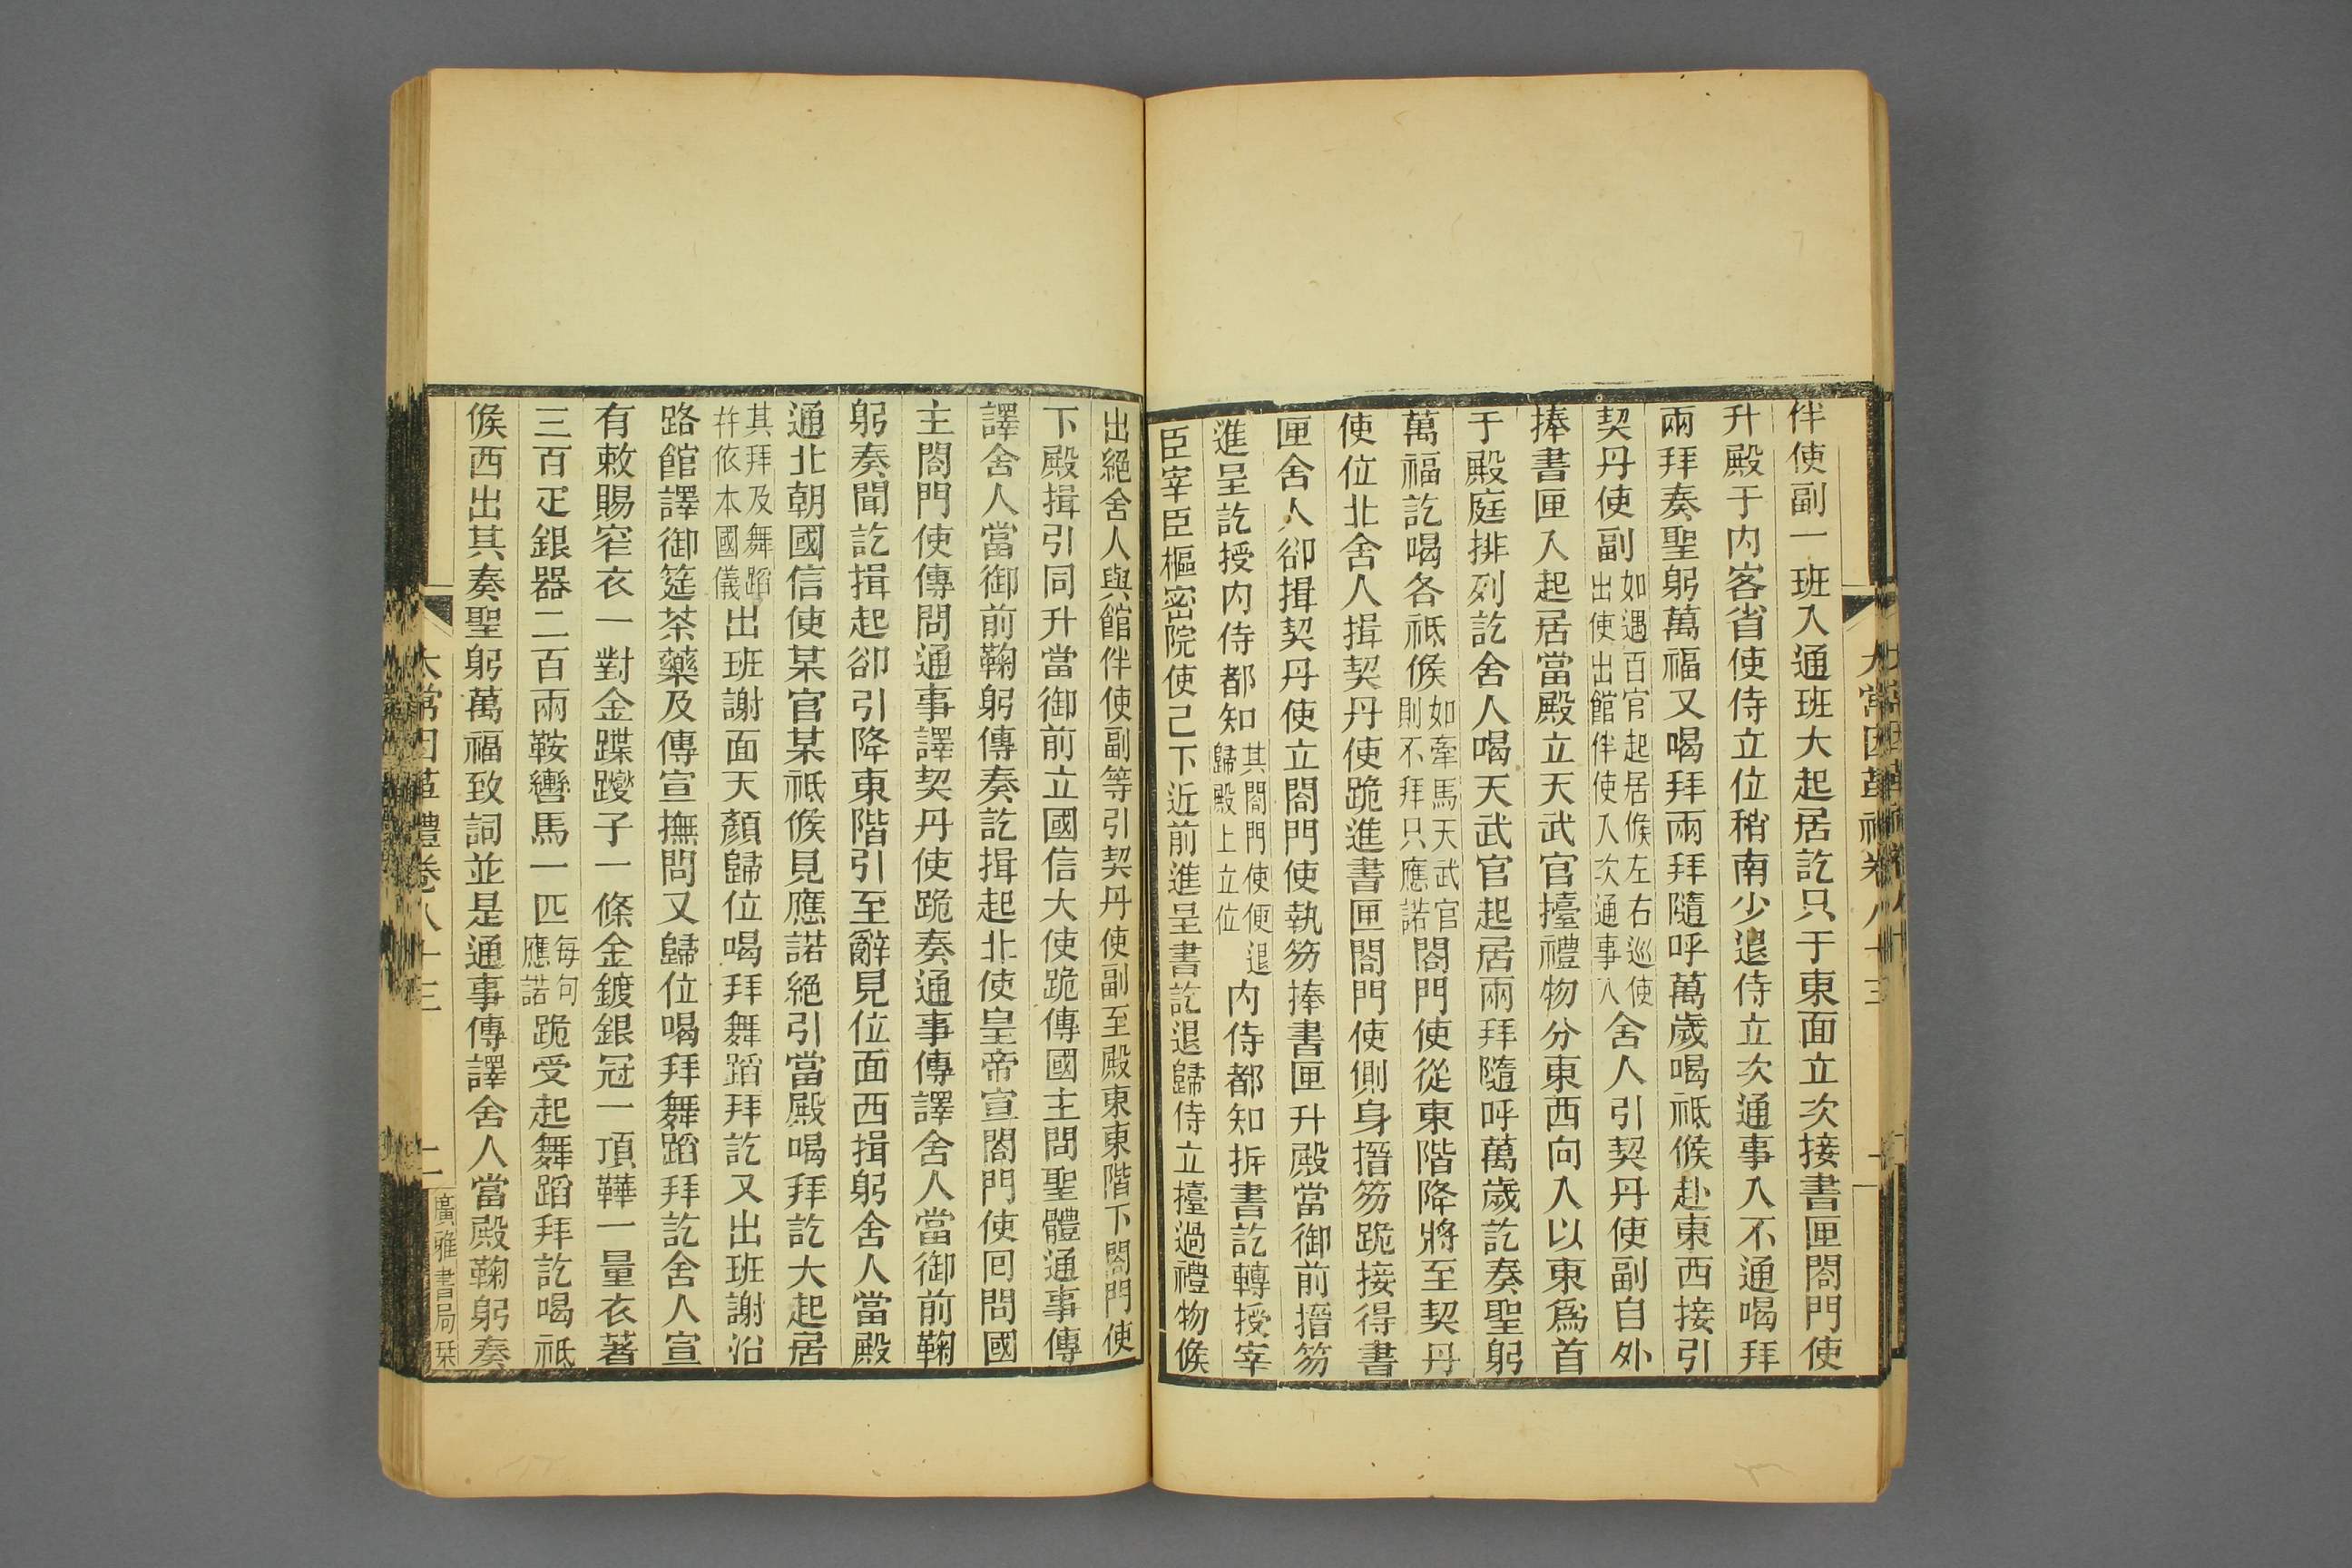 伴使副一班入通班大起居訖只于東面立次接書匣閤門使
升殿于内客省使侍立位稍南少退侍立次通事入不通喝拜
兩拜奏聖躬萬福又喝拜兩拜隨呼萬歲喝祗候赴東西接引
契丹使副如遇百官起居候左右巡使出使出館伴使入次通事入舍人引契丹使副自外
捧書匣入起居當殿立天武官擡禮物分東西向入以東爲首
于殿庭排列訖舍人喝天武官起居兩拜隨呼萬歲訖奏聖躬
萬福訖喝各祗候如牽馬天武官則不拜只應諾閤門使從東階降將至契丹
使位北舍人揖契丹使跪進書匣閤門使側身搢笏跪接得書
匣舍人卻揖契丹使立閤門使執笏捧書匣升殿當御前搢笏
進呈訖授内侍都知其閤門使便退歸殿上立位内侍都知拆書訖轉授宰
臣宰臣樞密院使己下近前進呈書訖退歸侍立擡過禮物候
出絕舍人與館伴使副等引契丹使副至殿東東階下閤門使
下殿揖引同升當御前立國信大使跪傳國主問聖體通事傳
譯舍人當御前鞠躬傳奏訖揖起北使皇帝宣閤門使回問國
主閤門使傳問通事譯契丹使跪奏通事傳譯舍人當御前鞠
躬奏聞訖揖起卻引降東階引至辭見位面西揖躬舍人當殿
通北朝國信使某官某祗候見應諾絕引當殿喝拜訖大起居
其拜及舞蹈幷依本國儀出班謝面天顏歸位喝拜舞蹈拜訖又出班謝沿
路館譯御筵茶藥及傳宣撫問又歸位喝拜舞蹈拜訖舍人宣
有敕賜窄衣一對金蹀躞子一條金鍍銀冠一頂鞾一量衣著
三百疋銀器二百兩鞍轡馬一匹每句應諾跪受起舞蹈拜訖喝祗
候西出其奏聖躬萬福致詞並是通事傳譯舍人當殿鞠躬奏
太常因革禮卷八十三
二
廣雅書局栞